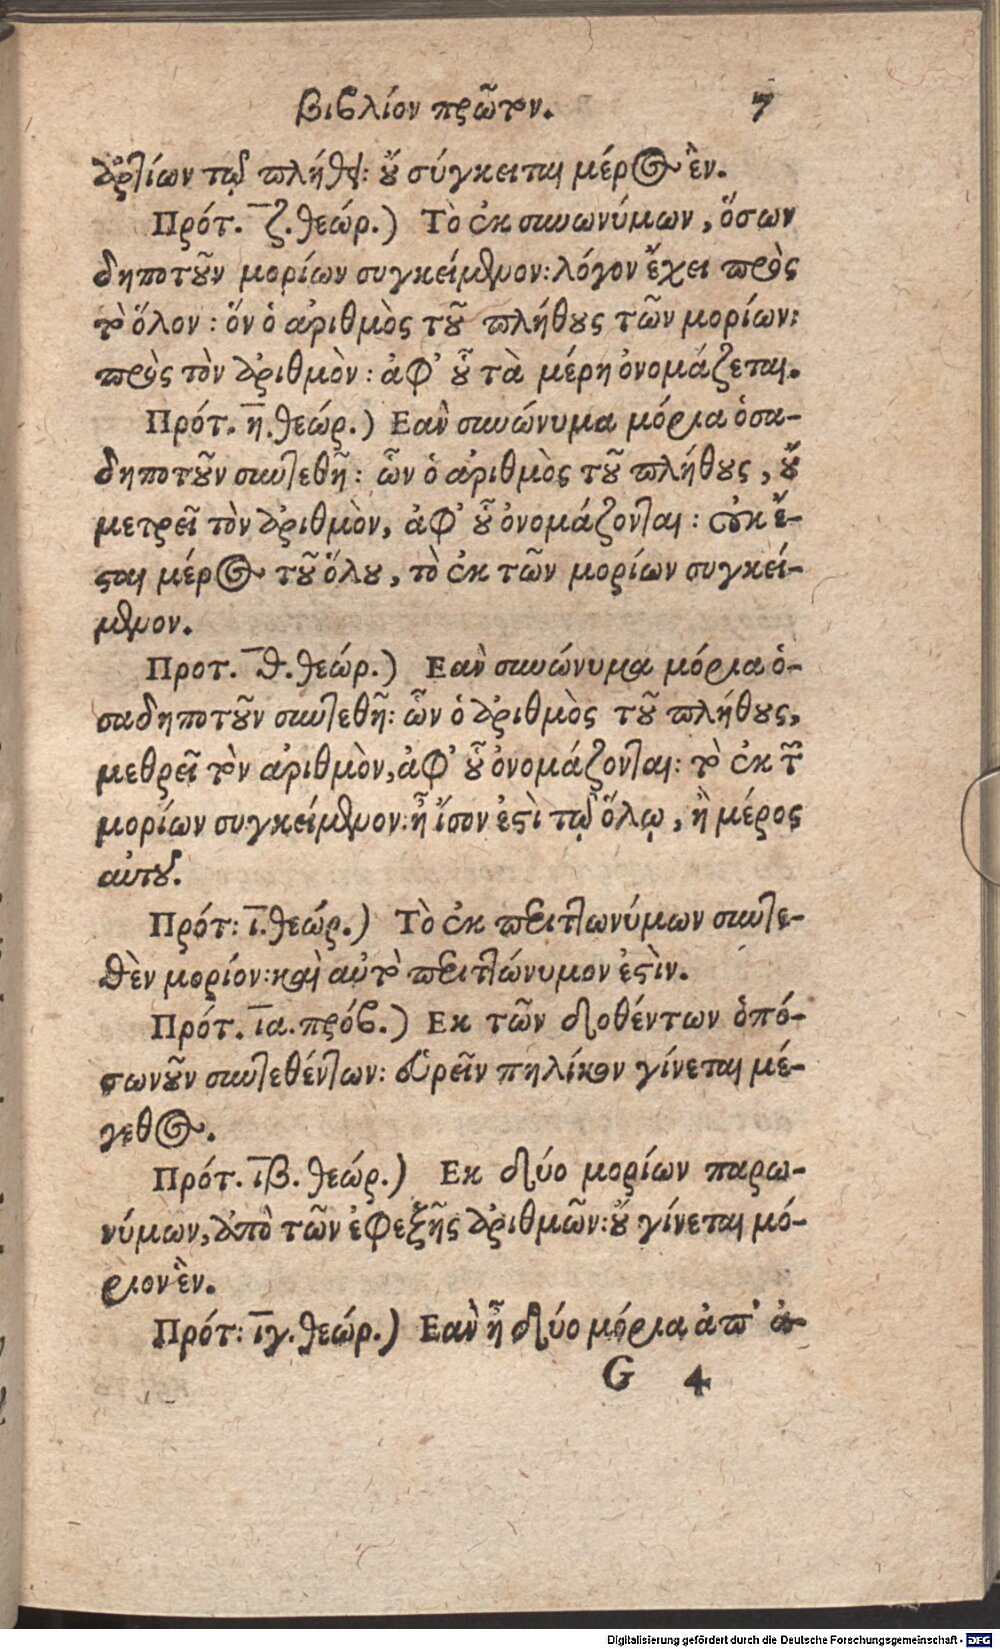 βιβλίον πρῶτον. 7
ἀρτίων τῷ πλήθει: οὐ σύγκειται μέρος ἓν.
Πρότ. ζ̅. θεώρ.) Τὸ ἐκ συνωνύμων, ὅσων
δηποτοῦν μορίων συγκείμενον: λόγον ἔχει πρὸς
τὸ ὅλον: ὅν ὁ ἀριθμὸς τοῦ πλήθους τῶν μορίων:
πρὸς τὸν ἀριθμὸν: ἀφ' οὗ τὰ μέρη ὀνομάζεται.
Πρότ. η̅. θεώρ.) Εαν̀ συνώνυμα μόρια ὁσα-
δηποτοῦν συντεθῆ: ὧν ὁ ἀριθμὸς τοῦ πλήθους, οὔ
μετρεῖ τὸν ἀριθμὸν, ἀφ' οὗ ὀνομάζονται: οὐκ ἔ-
σται μέρος τοῦ ὅλου, τὸ ἐκ τῶν μορίων συγκεί-
μενον.
Προτ. θ̅. θεώρ.) Εαν̀ συνώνυμα μόρια ὁ-
σαδηποτοῦν συντεθῆ: ὧν ὁ ἀριθμὸς τοῦ πλήθους,
μεθρεῖ τὸν ἀριθμὸν, ἀφ' οὗ ὀνομάζονται: τὸ ἐκ τῶν
μορίων συγκείμενον: ἢ ἴσον ἐστὶ τῷ ὅλῳ, ἢ μέρος
αὐτοῦ.
Πρότ: ι̅. θεώρ.) Τὸ ἐκ περιττωνύμων συντε-
θὲν μορίον: καὶ αὐτὸ περιττώνυμον ἐστὶν.
Πρότ. ι̅α. πρόβ.) Εκ τῶν δοθέντων ὁπό-
σωνοῦν συντεθέντων: εὑρεῖν πηλίκον γίνεται μέ-
γεθος.
Πρότ. ι̅β. θεώρ.) Εκ δύο μορίων παρω-
νύμων, ἀπὸ τῶν ἐφεξῆς ἀριθμῶν: οὐ γίνεται μό-
ριον ἓν.
Πρότ: ι̅γ. θεώρ.) Εαν̀ ἦ δύο μόρια ἀπ' ἀ-
G 4
Digitalisierung gefördert durch die Deutsche Forschungsgemeinschaft - DFG